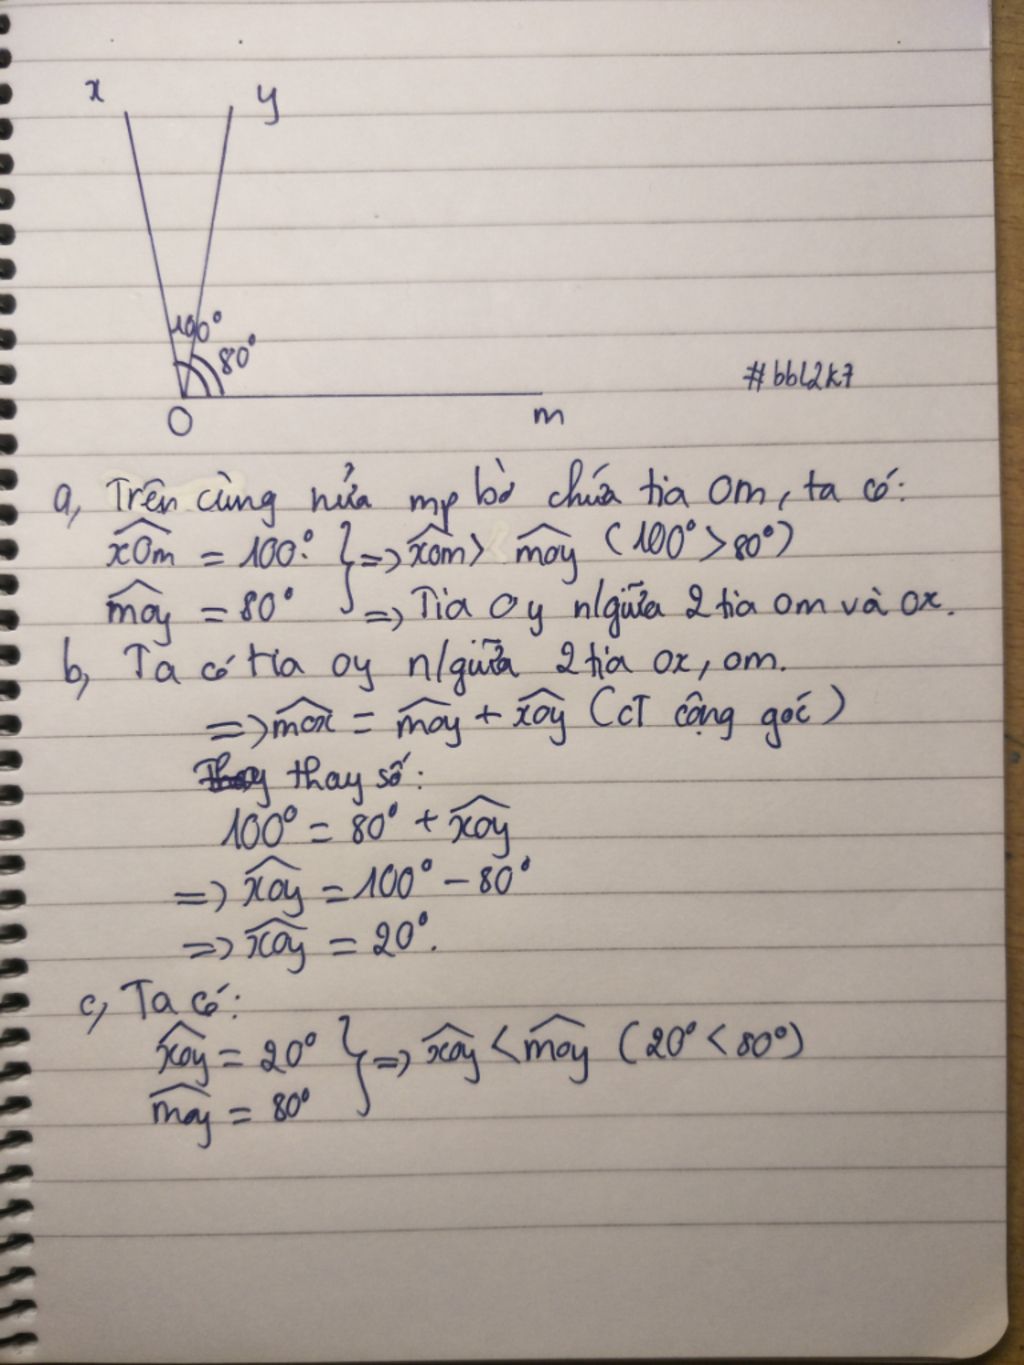 x y
100°
80°
#bbl2k7
O m
a, Trên cùng nửa mp bờ chứa tia Om, ta có:
xOm = 100° } => xOm > moy (100° > 80°)
moy = 80° => Tia Oy n/giữa 2 tia Om và Ox.
b, Ta có tia Oy n/giữa 2 tia Ox, Om.
=> mox = moy + xoy (CT cộng góc)
thay số:
100° = 80° + xoy
=> xoy = 100° - 80°
=> xoy = 20°.
c, Ta có:
xoy = 20° } => xoy < moy (20° < 80°)
moy = 80°